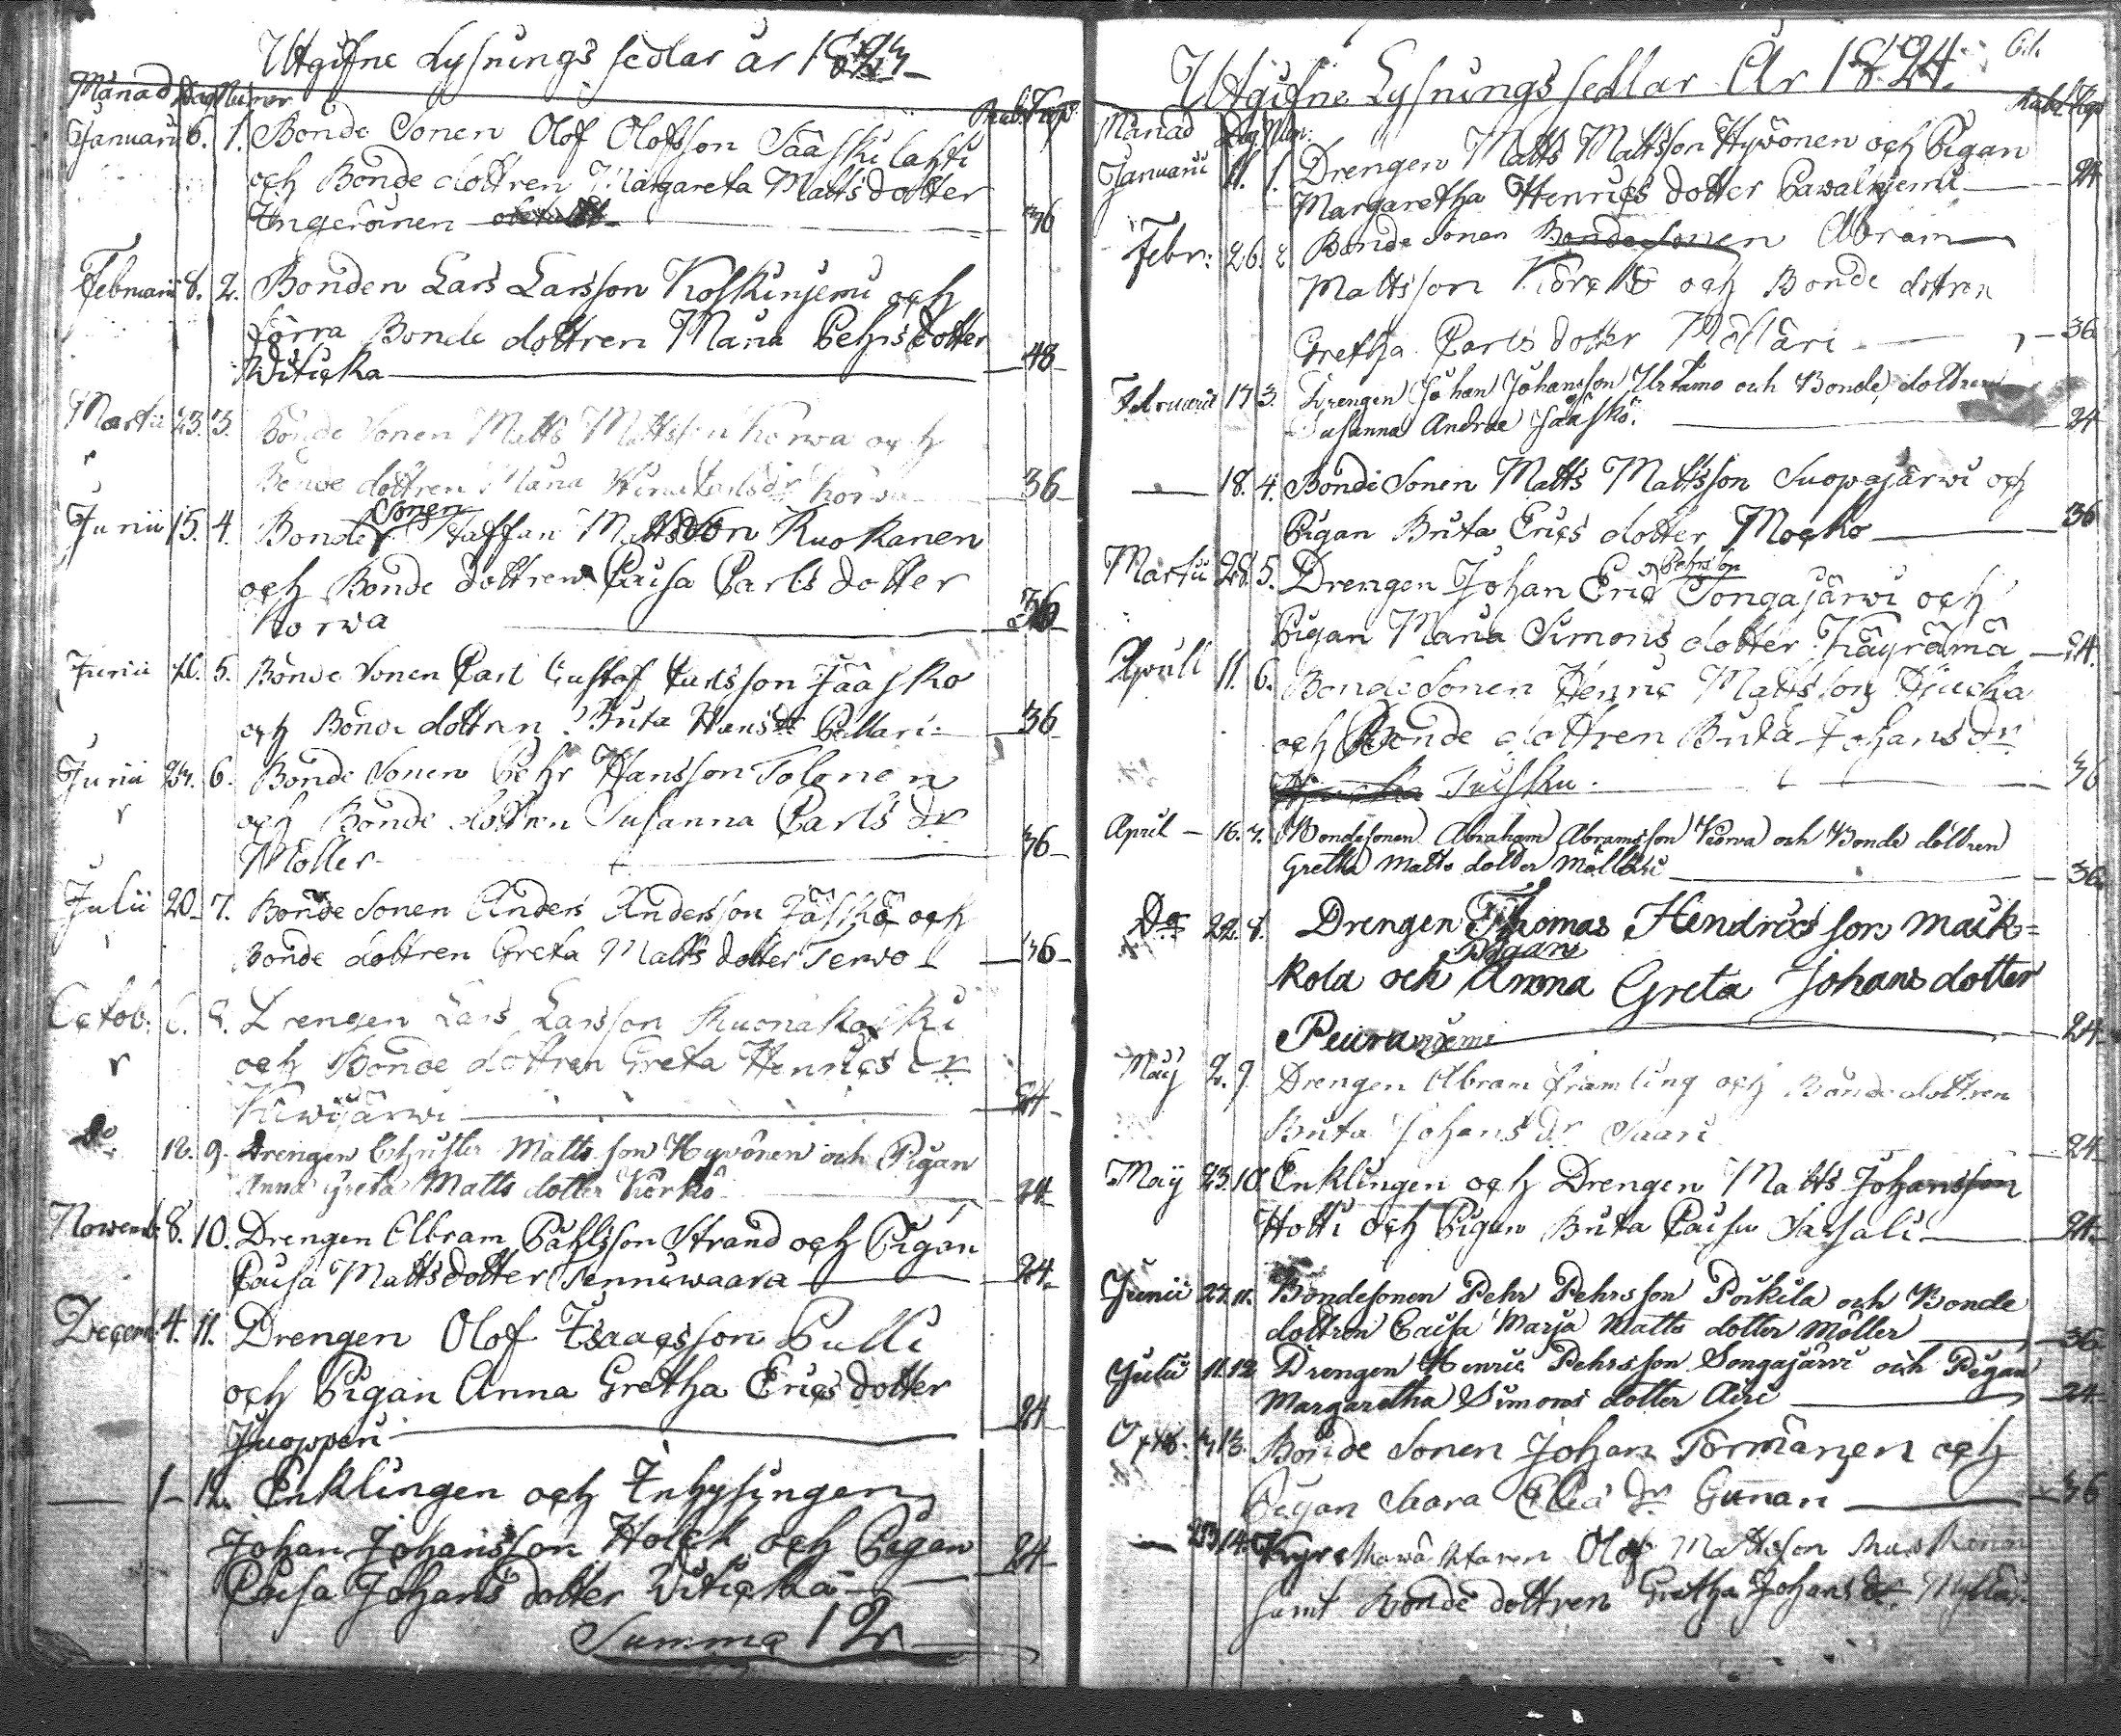 Utgifne Lysnings sedlar år 1823
Månad Dag Numer Rub. Kop.
Januarii 6. 1. Bonde Sonen Olof Olofsson Sääskilahti
och Bonde dottren Margareta Matts dotter
Ungeröinen 36
Februarii 8. 2. Bonden Lars Larsson Koskiniemi och
förra Bonde dottren Maria Pehrs dotter
Witicka 48
Martii 23. 3. Bonde Sonen Matts Mattsson Korwa och
Bonde dottren Maria Korwa 36
Sonen
Junii 15. 4. Bonde Staffan Mattsson Ruokanen
och Bonde dottren Caisa Carls dotter
Korwa 36
Junii 5. Bonde Sonen Carl Gustaf Carlsson Jääskö
och Bonde dottren Brita Hans dr Pallari 36
Junii 24. 6. Bonde Sonen Pehr Hansson Tolonen
och Bonde dottren Susanna Carls dr
Möller 36
Julii 20 7. Bonde Sonen Anders Andersson Jäskö och
Bonde dottren Greta Matts dotter Terwo 36
Octob. 6. 8. Drengen Lars Larsson Kuonakoski
och Bonde dottren Greta Henrics dr
Kiwijärwi 24
Do 12. 9. Drengen Christer Mattsson Hyvönen och Pigan
Anna Greta Matts dotter Körkö 24
Novemb. 8. 10. Drengen Abram Påhlsson Strand och Pigan
Caisa Matts dotter Senniwaara 24
Decem. 4. 11. Drengen Olof Isaacsson Pulli
och Pigan Anna Gretha Erics dotter
Juopperi 24
1 12. Enklingen och Inhysingen
Johan Johansson Holck och Pigan
Caisa Johans dotter Witicka 24
Summa 12
Utgifne Lysnings sedlar År 1824.
Månad Dag Num: Rub. Kop
Januarii 11. 1. Drengen Matts Mattsson Hyvönen och Pigan
Margaretha Henrics dotter Pawalniemi 24
Febr: 26. 2 Bonde Sonen Bondesonen Abram
Mattsson Körckö och Bonde dottren
Gretha Carls dotter Möllari 36
Februarii 17 3. Drengen Johan Johansson Urtamo och Bonde dottren
Susanna Andrae Jääskö. 24
18. 4. Bonde Sonen Matts Mattsson Suopajärwi och
Pigan Brita Erics dotter Mocko 36
Pehrs son
Martii 28. 5. Drengen Johan Eric Songajärwi och
Pigan Maria Simons dotter Käyrälmä 24.
Aprill 11. 6. Bonde Sonen Henric Mattsson Hiucka
och Bonde dottren Brita Johans dr
Tuisku 36
April 16. 7. Bondesonen Abraham Abramsson Korwa och Bonde dottren
Gretha Matts dotter Mölläri 36
Do 22. 8. Drengen Thomas Hendricsson Maik=
Pigan
kola och Anna Greta Johans dotter
Peuraniemi 24
Maij 2. 9. Drengen Abram främling och Bonde dottren
Brita Johans dr Saari 24
Maij 23. 10. Enklingen och Drengen Matts Johansson
Hotti och Pigan Brita Caisa Sarsali 24.
Junii 27. 11. Bondesonen Pehr Pehrsson Poikila och Bonde
dottren Caisa Marja Matts dotter Möller 36
Julii 11. 12. Drengen Henric Pehrsson Songajärwi och Pigan
Margaretha Simons dotter Airi 24
13. Bonde Sonen Johan Törmänen och
Pigan Saara Elia dr Gunari 36
14. Kyrckowächtaren Olof Mattsson Ruokanen
samt Bonde dottren Gretha Johans dr.